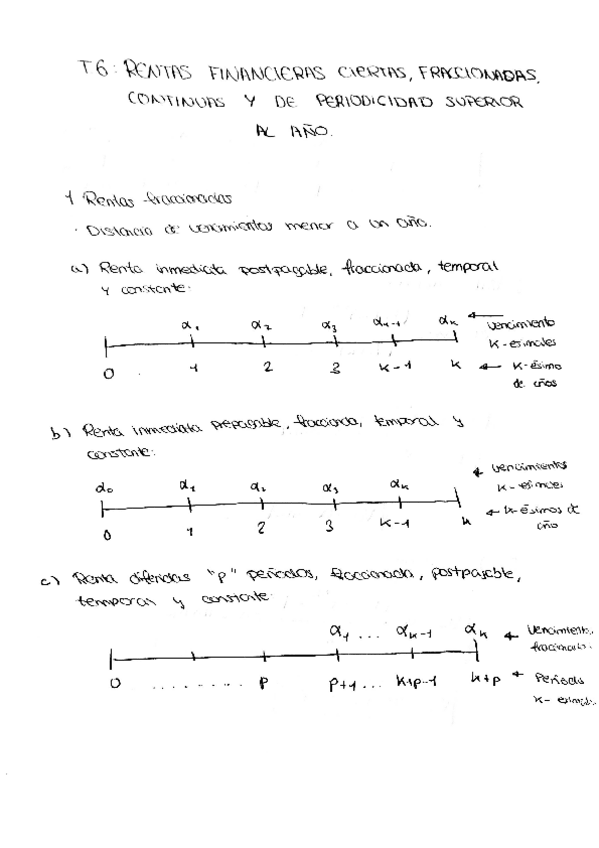 T6: RENTAS FINANCIERAS CIERTAS, FRACCIONADAS,
CONTINUAS Y DE PERIODICIDAD SUPERIOR
AL AÑO.
1 Rentas fraccionadas
· Distancia de vencimientos menor a un año.
a) Renta inmediata postpagable, fraccionada, temporal
y constante:
α1 α2 α3 αk-1 αk ← vencimiento
k-esimales
0 1 2 3 k-1 k ← k-ésimo
de años
b) Renta inmediata prepagable, fraccionada, temporal y
constante:
α0 α1 α2 α3 αk ← vencimientos
k-esimales
0 1 2 3 k-1 k ← k-ésimos de
año
c) Renta diferidas "p" periodos, fraccionada, postpagable,
temporal y constante
α1 ... αk-1 αk ← Vencimiento.
0 ........ p p+1 ... k+p-1 k+p ← Periodo